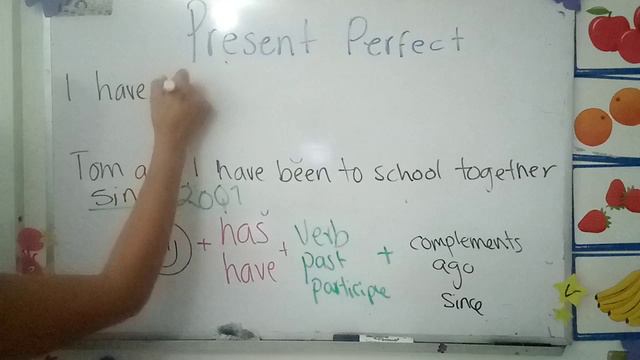 Present Perfect
I have
Tom a I have been to school together
sin 2001
+ has + verb + complements
have past ago
participe since